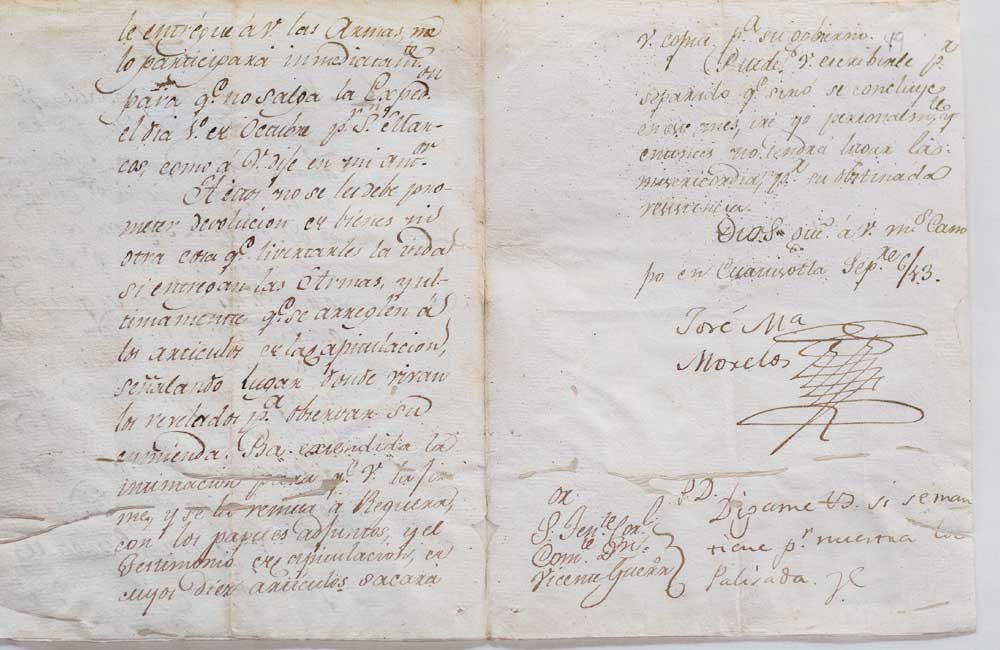 le entregue á V. las Armas, me
lo participará inmediatamte
para qe. no salga la Expedon
el dia 1o. de Octubre pr. Sn.
cos, como á V. dije en mi antor.
A esos no se les debe pro-
meter devolucion de bienes ni
otra cosa qe. livertarles la vida
si entregan las Armas, y ul-
timamente qe. se arreglen á
los articulos de la capitulacion,
señalando lugar donde vivan
los revelados pa. observar su
enmienda. Va extendida la
intimacion para qe. V. la fir-
me, y se la remita á Reguera,
con los papeles adjuntos, y el
Testimonio de capitulacion, de
cuyos diez articulos sacará
V. copia pa. su gobierno.
19
Puede V. escribirle pr.
separado qe. si no se concluye
en este mes, iré yo personalmte. y
entonces no tendra lugar la
misericordia, pr. su obstinada
resistencia.
Dios gue. á V. ms. as. Cam
po en Sepre. 6/813.
José Ma.
Morelos
P.D.
Digame V. si se man
tiene pr. nuestra la
Palisada.
Sr. Tente. Corl.
Comte. Dn.
Vicente Guerrro.